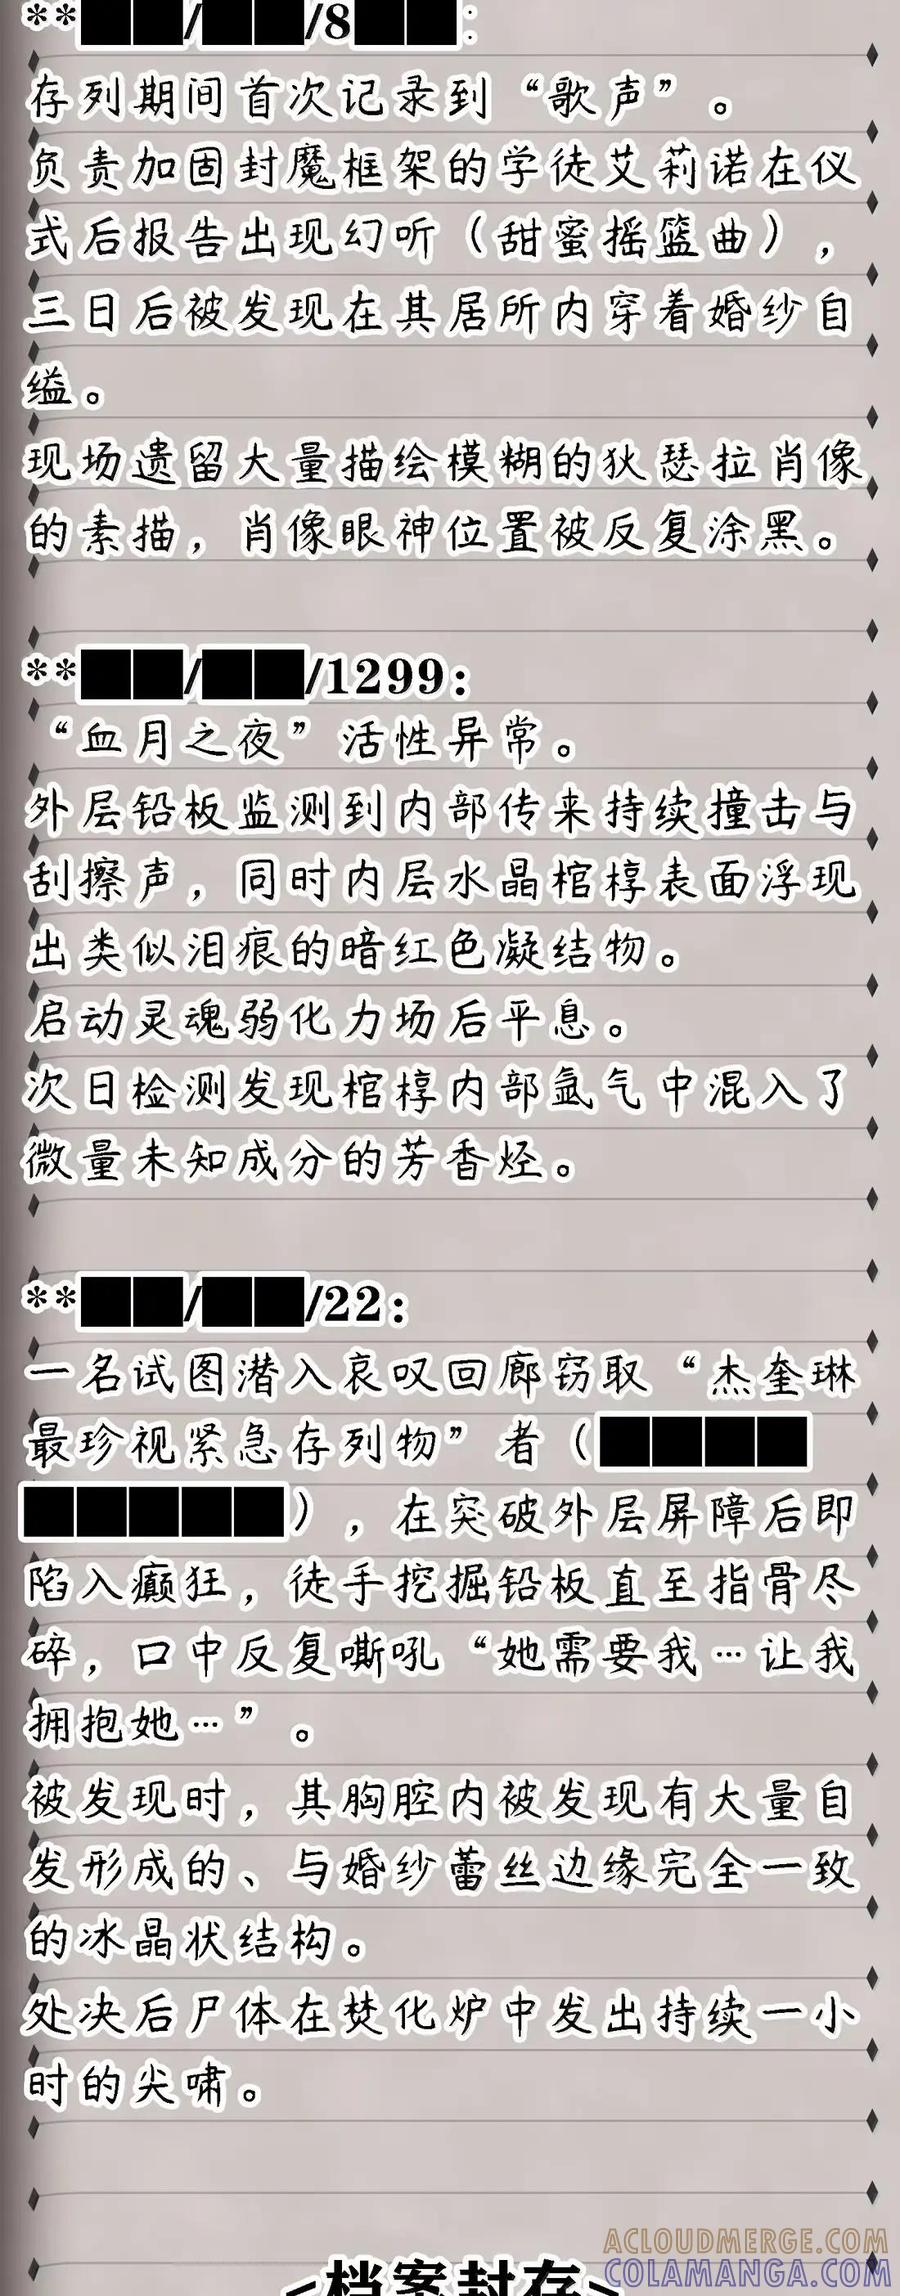 **██/██/8██:
存列期间首次记录到“歌声”。
负责加固封魔框架的学徒艾莉诺在仪
式后报告出现幻听（甜蜜摇篮曲），
三日后被发现在其居所内穿着婚纱自
缢。
现场遗留大量描绘模糊的狄瑟拉肖像
的素描，肖像眼神位置被反复涂黑。
**██/██/1299:
“血月之夜”活性异常。
外层铅板监测到内部传来持续撞击与
刮擦声，同时内层水晶棺椁表面浮现
出类似泪痕的暗红色凝结物。
启动灵魂弱化力场后平息。
次日检测发现棺椁内部氩气中混入了
微量未知成分的芳香烃。
**██/██/22:
一名试图潜入哀叹回廊窃取“杰奎琳
最珍视紧急存列物”者（████
█████），在突破外层屏障后即
陷入癫狂，徒手挖掘铅板直至指骨尽
碎，口中反复嘶吼“她需要我…让我
拥抱她…”。
被发现时，其胸腔内被发现有大量自
发形成的、与婚纱蕾丝边缘完全一致
的冰晶状结构。
处决后尸体在焚化炉中发出持续一小
时的尖啸。
<档案封存>
ACLOUDMERGE.COM
COLAMANGA.COM